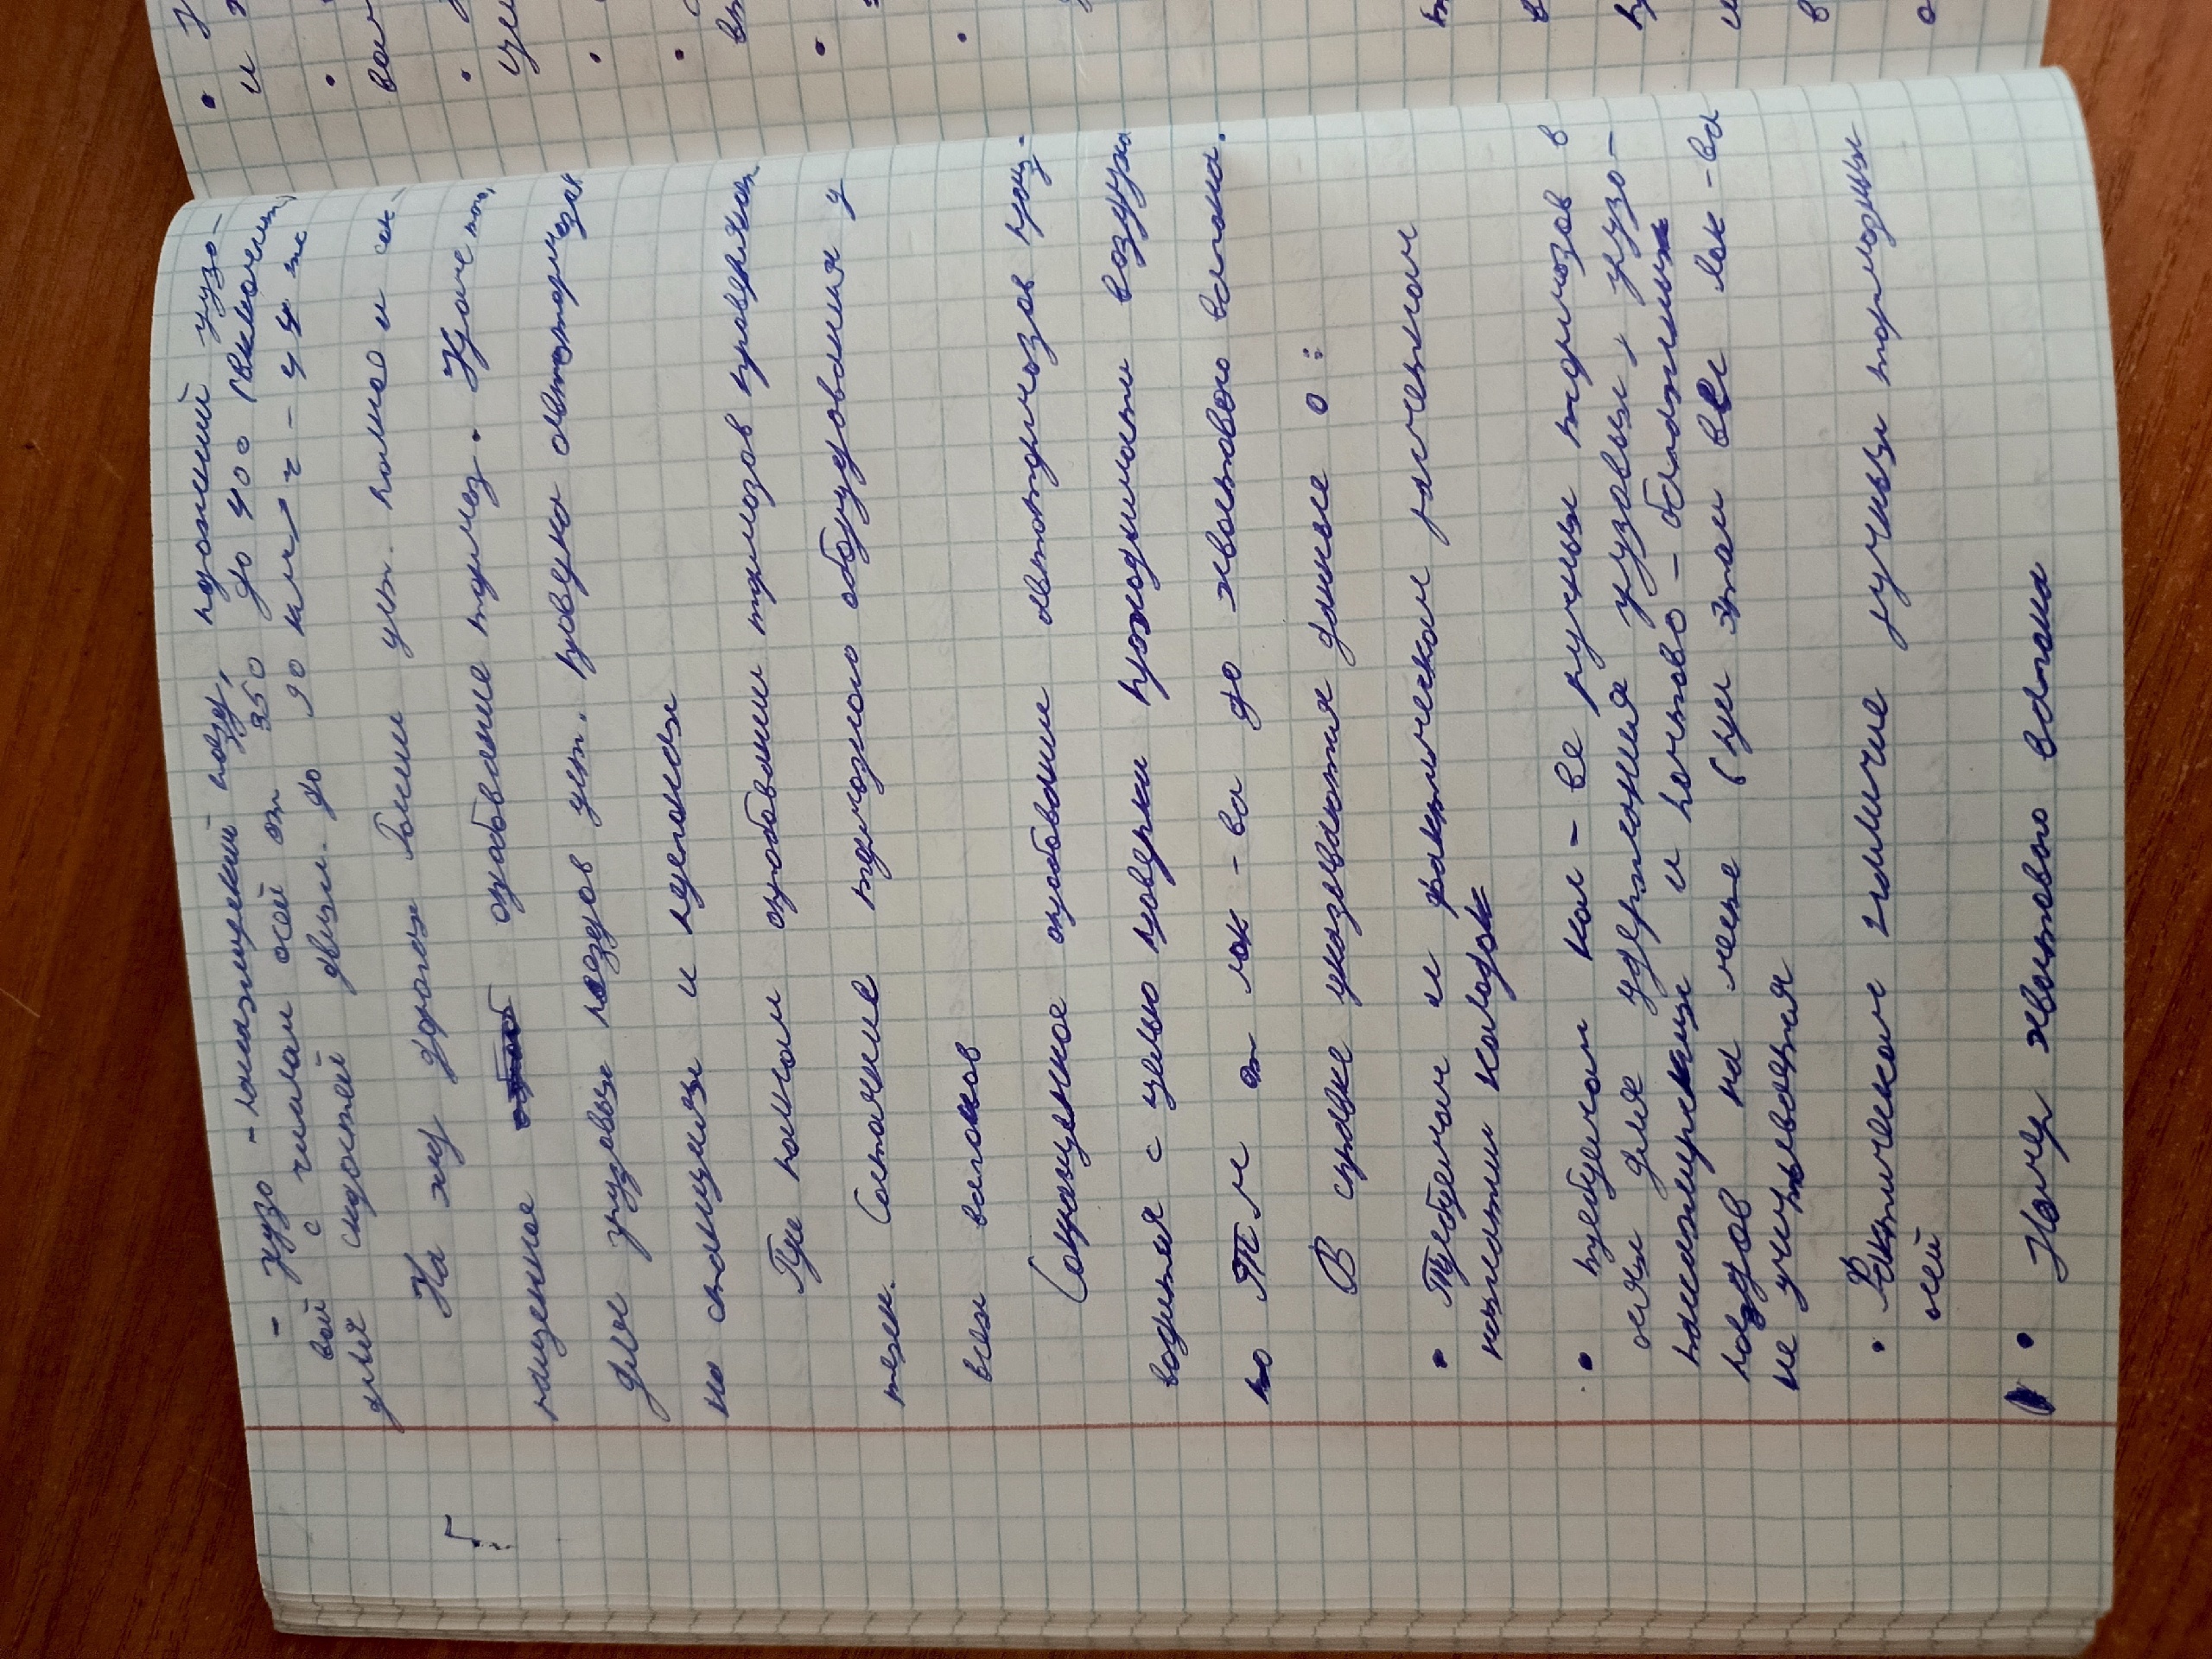 - грузо - пассажирский поезд, порожний грузо-
вой с числом осей от 350 до 400 (включит)
для скоростей движ. до 90 км/ч - 44 тс
На жд дорогах Росии уст. полное и сок-
ращенное опробование тормоз. Кроме того,
для грузовых поездов уст. проверка автотормозов
на станциях и перегонах
При полном опробовании тормозов проверяют
техн. Состояние тормозного оборудования у
всех вагонов
Сокращенное опробовании автотормозов про-
водится с целью проверки проходимости воздуха
по ТМ от лок-ва до хвостового вагона.
В справке указываются данные о:
• Требуемом и фактическом расчетном
нажатии колодок
• требуемом кол-ве ручных тормозов в
осях для удержания грузовых, грузо-
пассажирских и почтово-багажных
поездов на месте При этом вес лок-ва
не учитывается
• Фактическом наличие ручных тормозных
осей
• Номер хвостового вагона